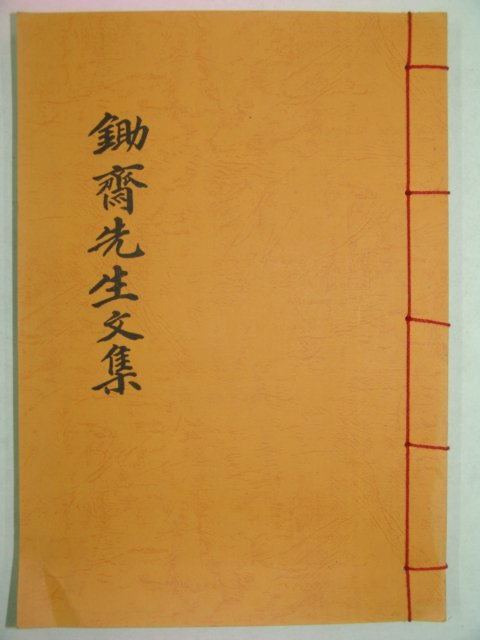 鋤齋先生文集